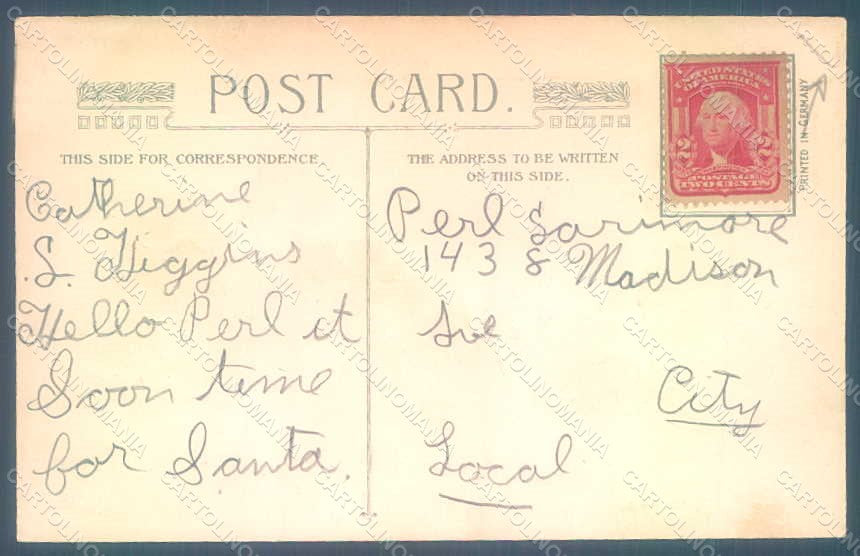 POST CARD.
THIS SIDE FOR CORRESPONDENCE
THE ADDRESS TO BE WRITTEN
ON THIS SIDE.
UNITED STATES
OF AMERICA
2 2
POSTAGE
TWO CENTS
PRINTED IN GERMANY
Catherine
S. Higgins
Hello Perl it
Soon time
for Santa.
Perl Sarimore
143 S Madison
Ave
City
Local
CARTOLINOMANIA